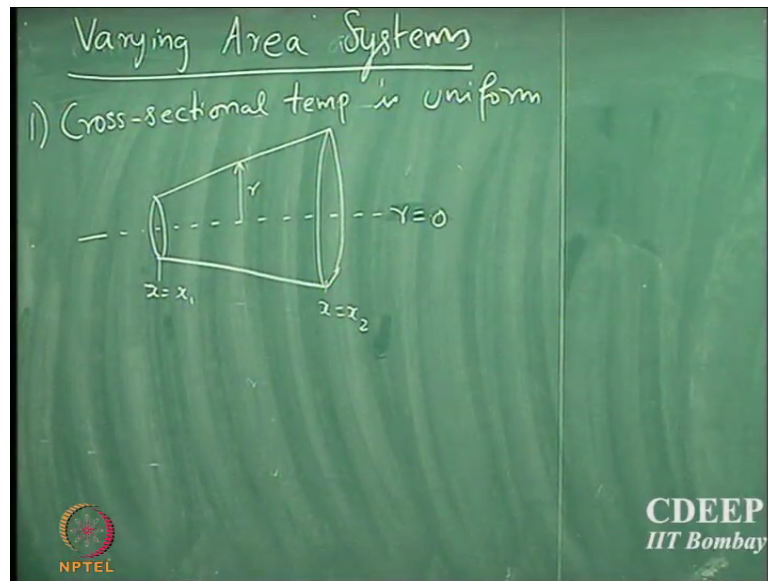 Varying Area Systems
1) Cross-sectional temp is uniform
r
r=0
x=x₁
x=x₂
CDEEP
IIT Bombay
NPTEL